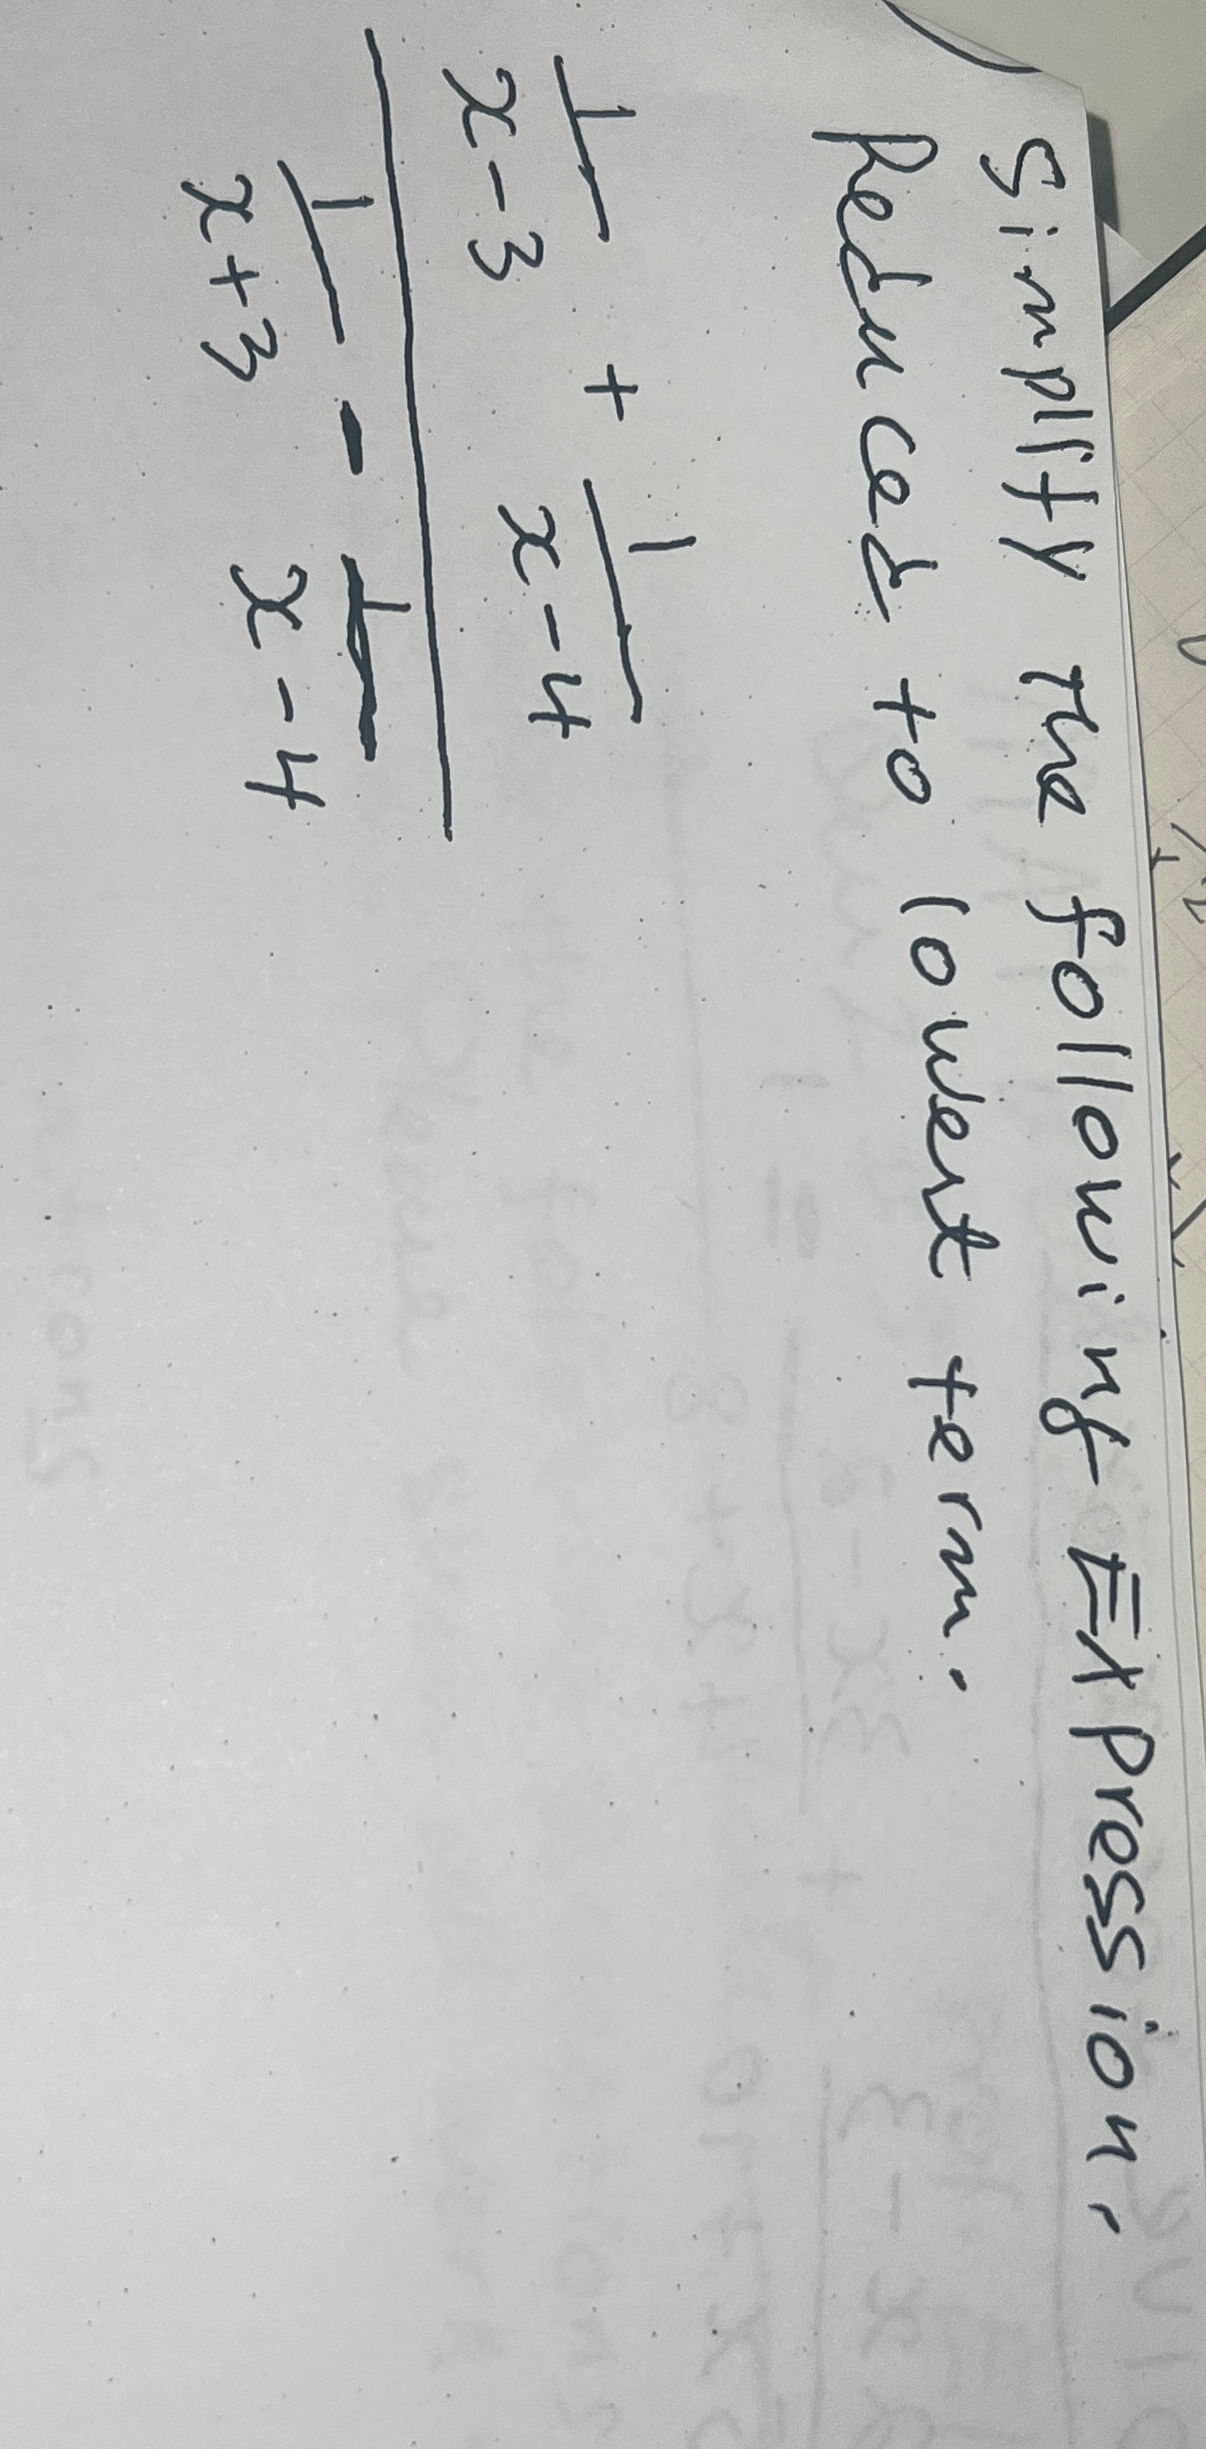 Simplify The following Expression.
Reduced to lowest term.
1/(x-3) + 1/(x-4)
1/(x+3) - 1/(x-4)